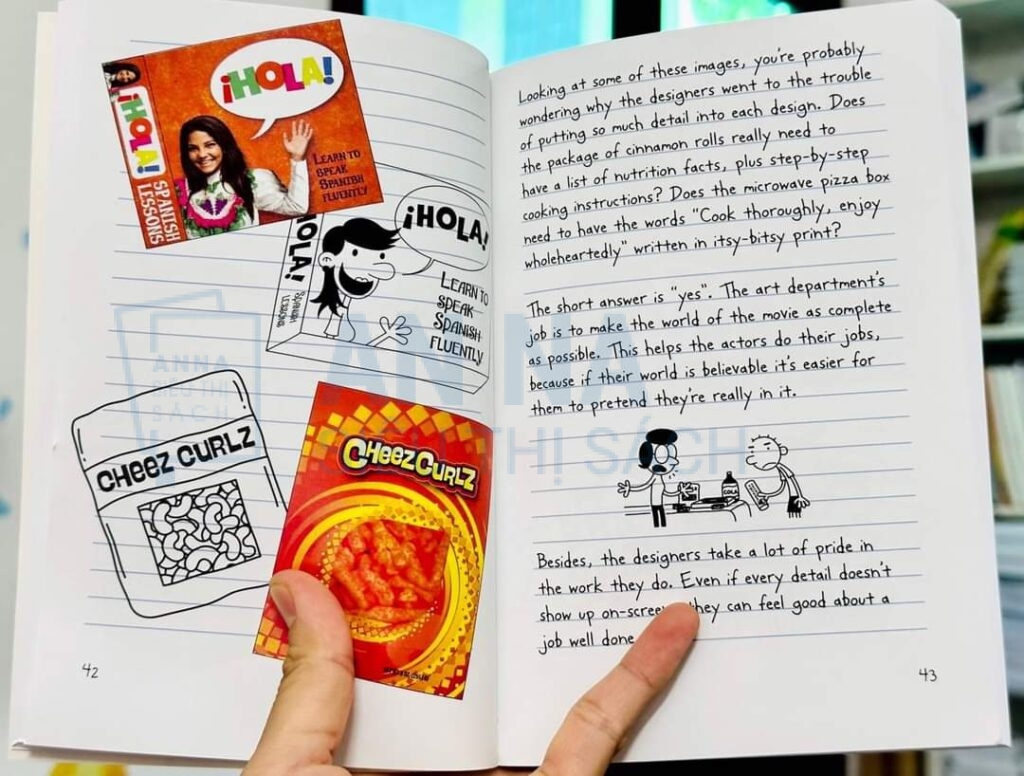 ¡HOLA!
¡HOLA!
SPANISH
LESSONS
LEARN TO
SPEAK
SPANISH
FLUENTLY
¡HOLA!
HOLA!
SPANISH
LESSONS
LEARN TO
SPEAK
SPANISH
FLUENTLY
CHEEZ CURLZ
CHEEZ CURLZ
42
Looking at some of these images, you're probably
wondering why the designers went to the trouble
of putting so much detail into each design. Does
the package of cinnamon rolls really need to
have a list of nutrition facts, plus step-by-step
cooking instructions? Does the microwave pizza box
need to have the words "Cook thoroughly, enjoy
wholeheartedly" written in itsy-bitsy print?
The short answer is "yes". The art department's
job is to make the world of the movie as complete
as possible. This helps the actors do their jobs,
because if their world is believable it's easier for
them to pretend they're really in it.
COLA
Besides, the designers take a lot of pride in
the work they do. Even if every detail doesn't
show up on-screen, they can feel good about a
job well done
43
ANNA
SIÊU THỊ
SÁCH
AN NA
SIÊU THỊ SÁCH